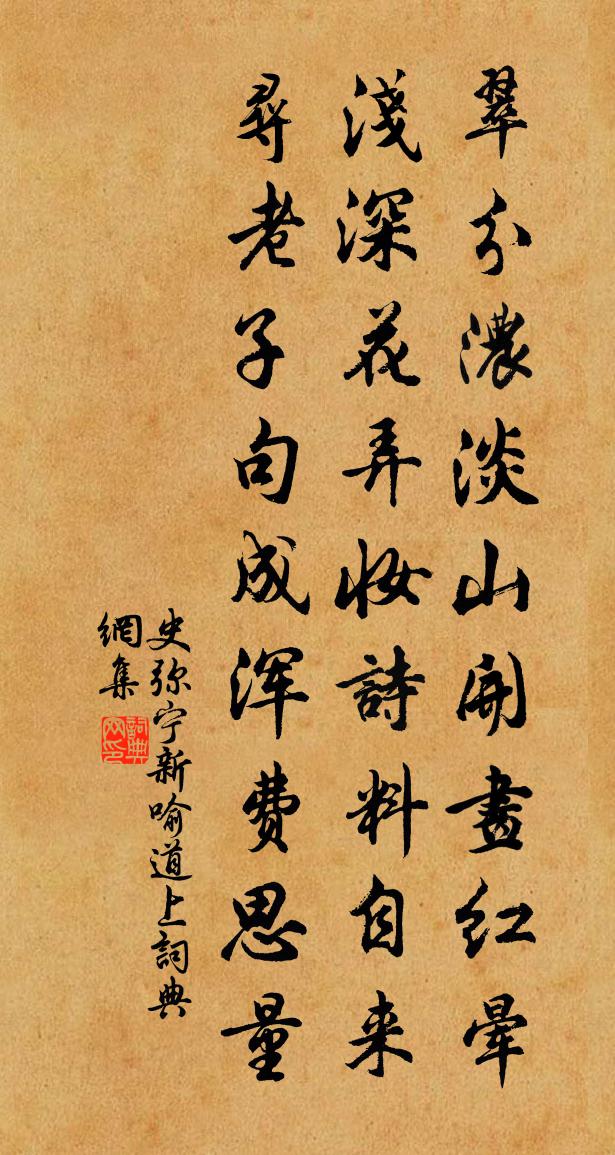 翠分濃淡山開畫紅暈
淺深花弄妝詩料自来
尋老子句成渾费思量
史弥宁新喻道上詞典
網集
詞典网印